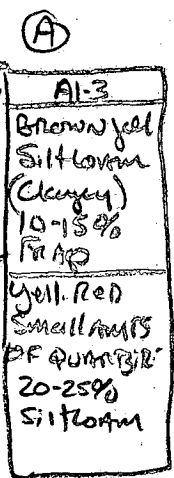 A
A1-3
Brown yell
Silt loam
(Clayey)
10-15%
Trap
Yell. Red
Small amts
OF QUARTZ
20-25%
Silt loam